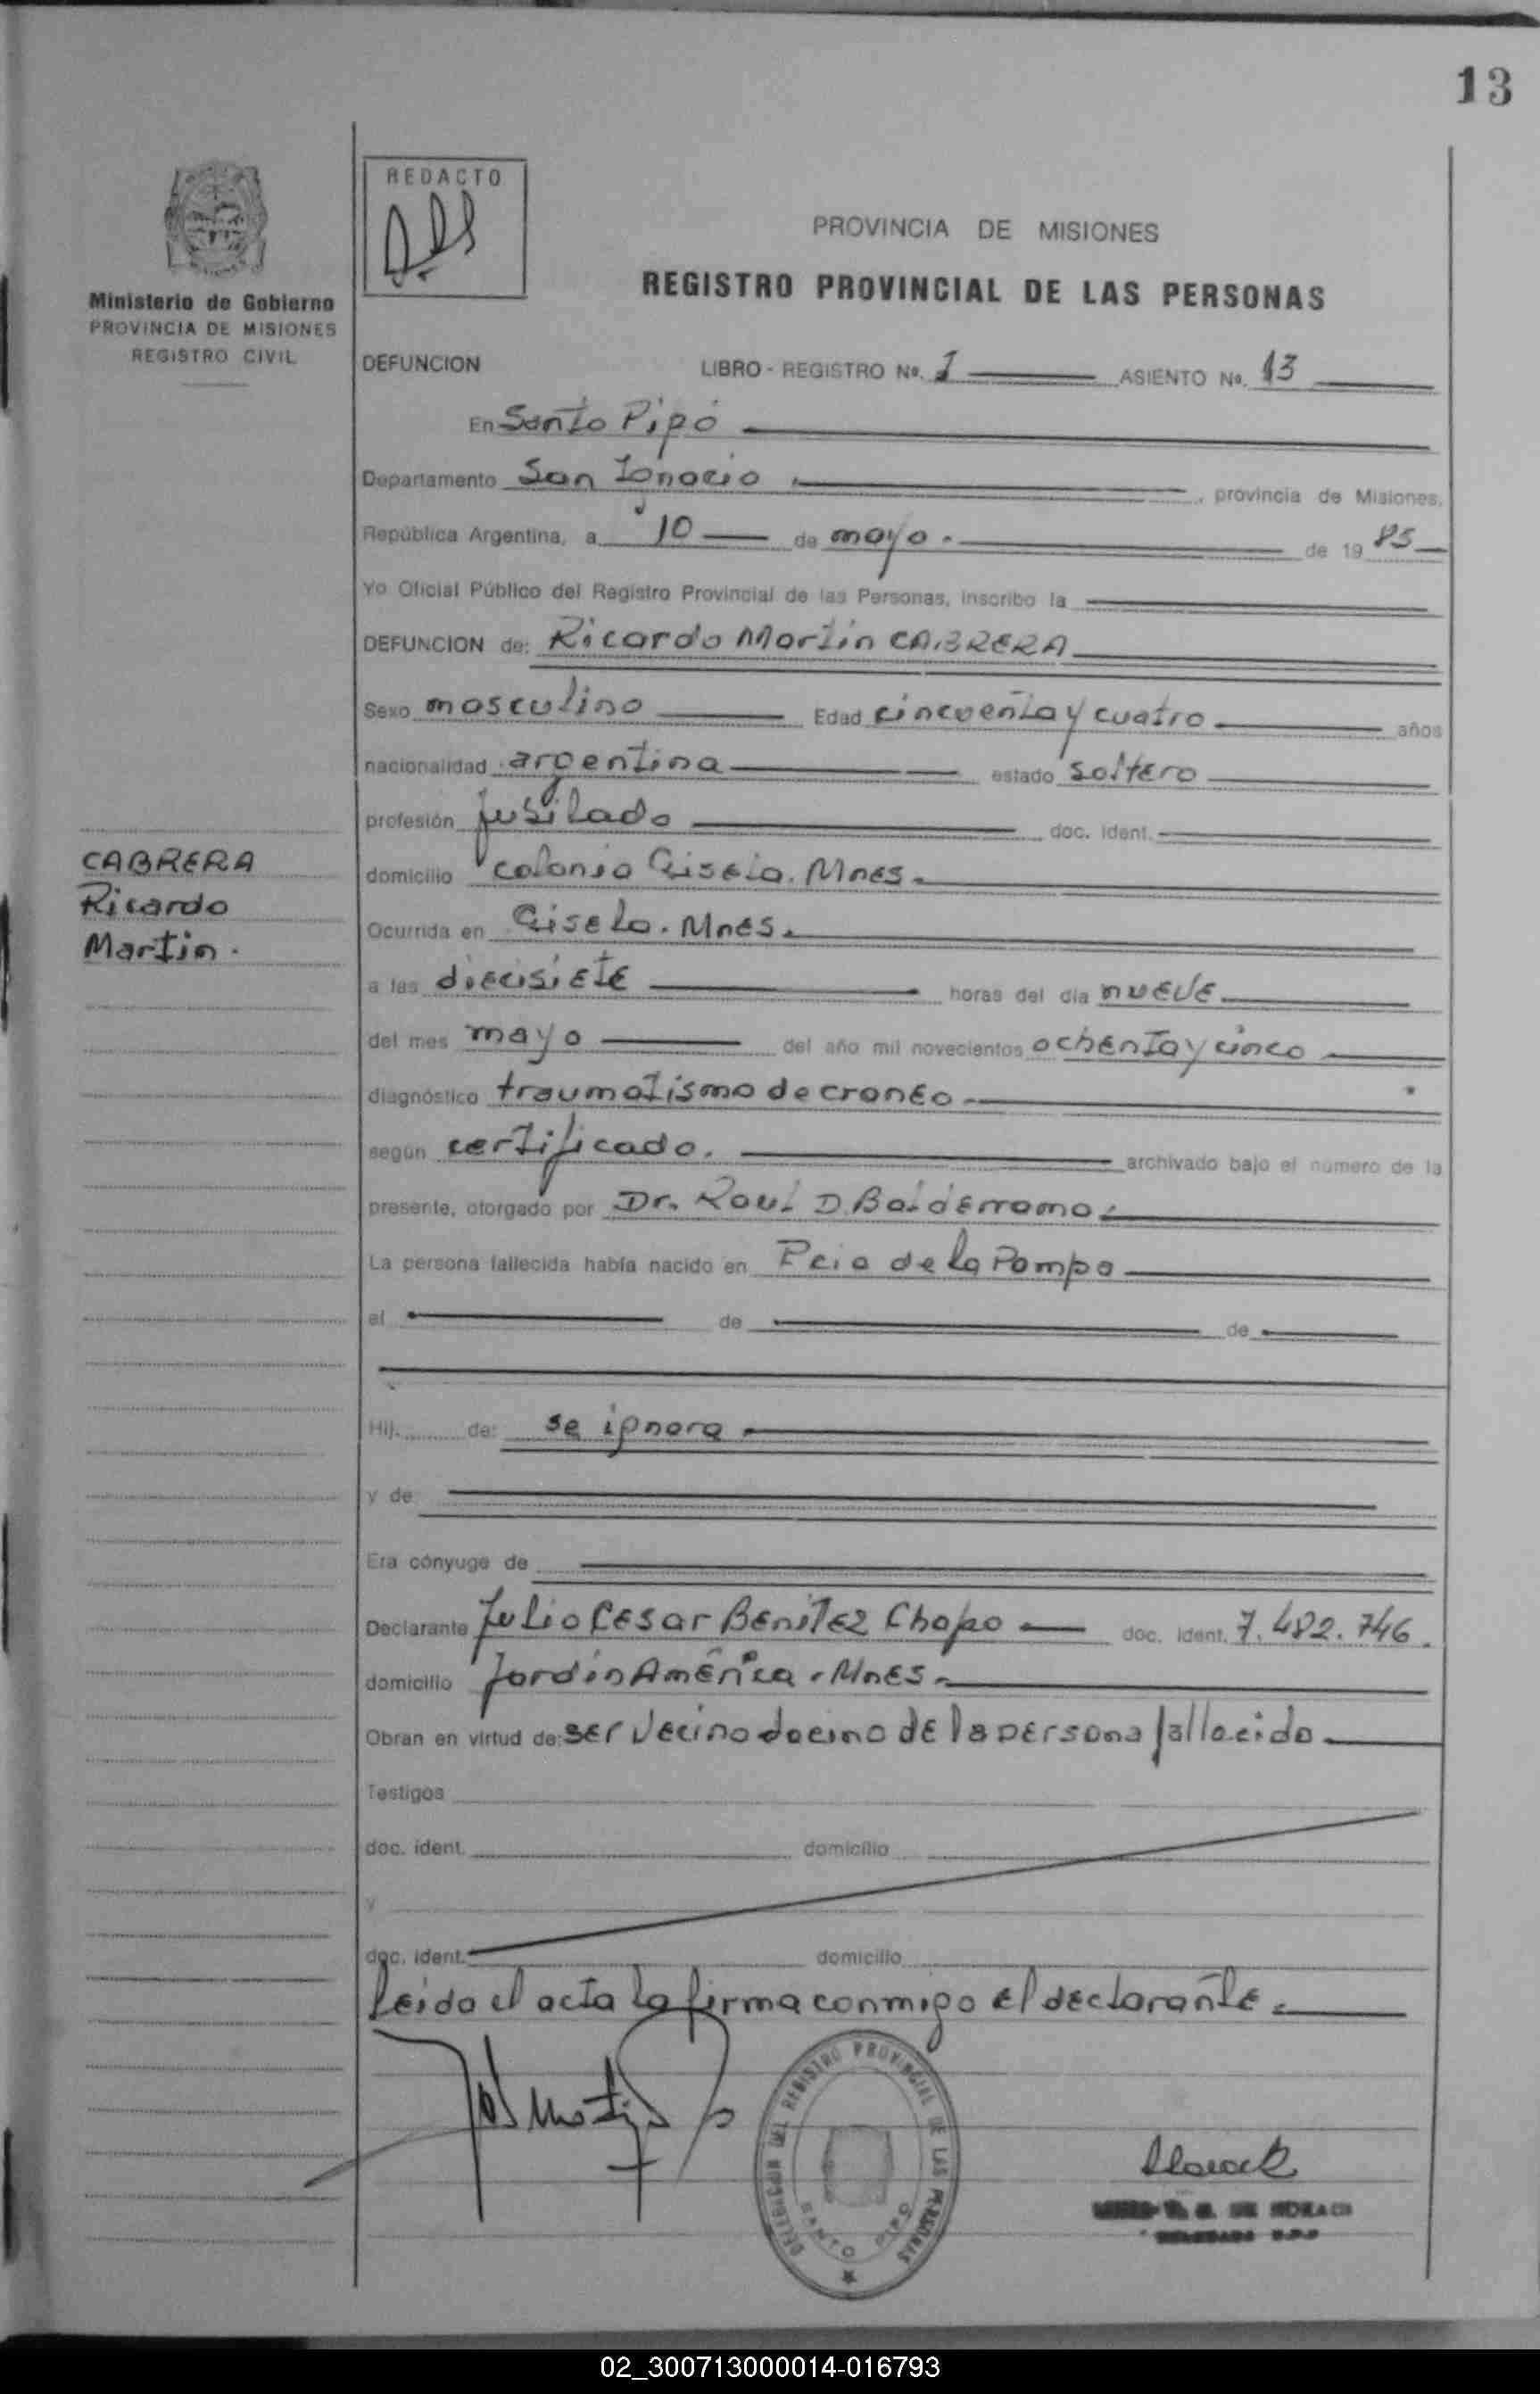 13
REDACTO
PROVINCIA DE MISIONES
REGISTRO PROVINCIAL DE LAS PERSONAS
Ministerio de Gobierno
PROVINCIA DE MISIONES
REGISTRO CIVIL
DEFUNCION LIBRO - REGISTRO Nº. 1 ASIENTO Nº. 13
En Santo Pipó
Departamento San Ignacio, provincia de Misiones,
República Argentina, a 10 de mayo. de 19 85
Yo Oficial Público del Registro Provincial de las Personas, inscribo la
DEFUNCION de: Ricardo Martín CABRERA
Sexo masculino Edad cincuenta y cuatro años
nacionalidad argentina estado soltero
profesión jubilado doc. ident.
CABRERA
Ricardo
Martin.
domicilio colonia Gisela. Mnes.
Ocurrida en Gisela. Mnes.
a las diecisiete horas del día nueve
del mes mayo del año mil novecientos ochenta y cinco
diagnóstico traumatismo de craneo
según certificado. archivado bajo el número de la
presente, otorgado por Dr. Raul D. Balderrama.
La persona fallecida había nacido en Pcia de la Pampa
el de de
Hij. de: se ignora
y de
Era cónyuge de
Declarante Julio Cesar Benitez Chapo doc. ident. 7.482.746.
domicilio Jardín América. Mnes.
Obran en virtud de: ser vecino de la persona fallecida
Testigos
doc. ident. domicilio
y
doc. ident. domicilio
Leida el acta la firma conmigo el declarante.
DELEGACION DEL REGISTRO PROVINCIAL DE LAS PERSONAS
SANTO PIPO
02_300713000014-016793